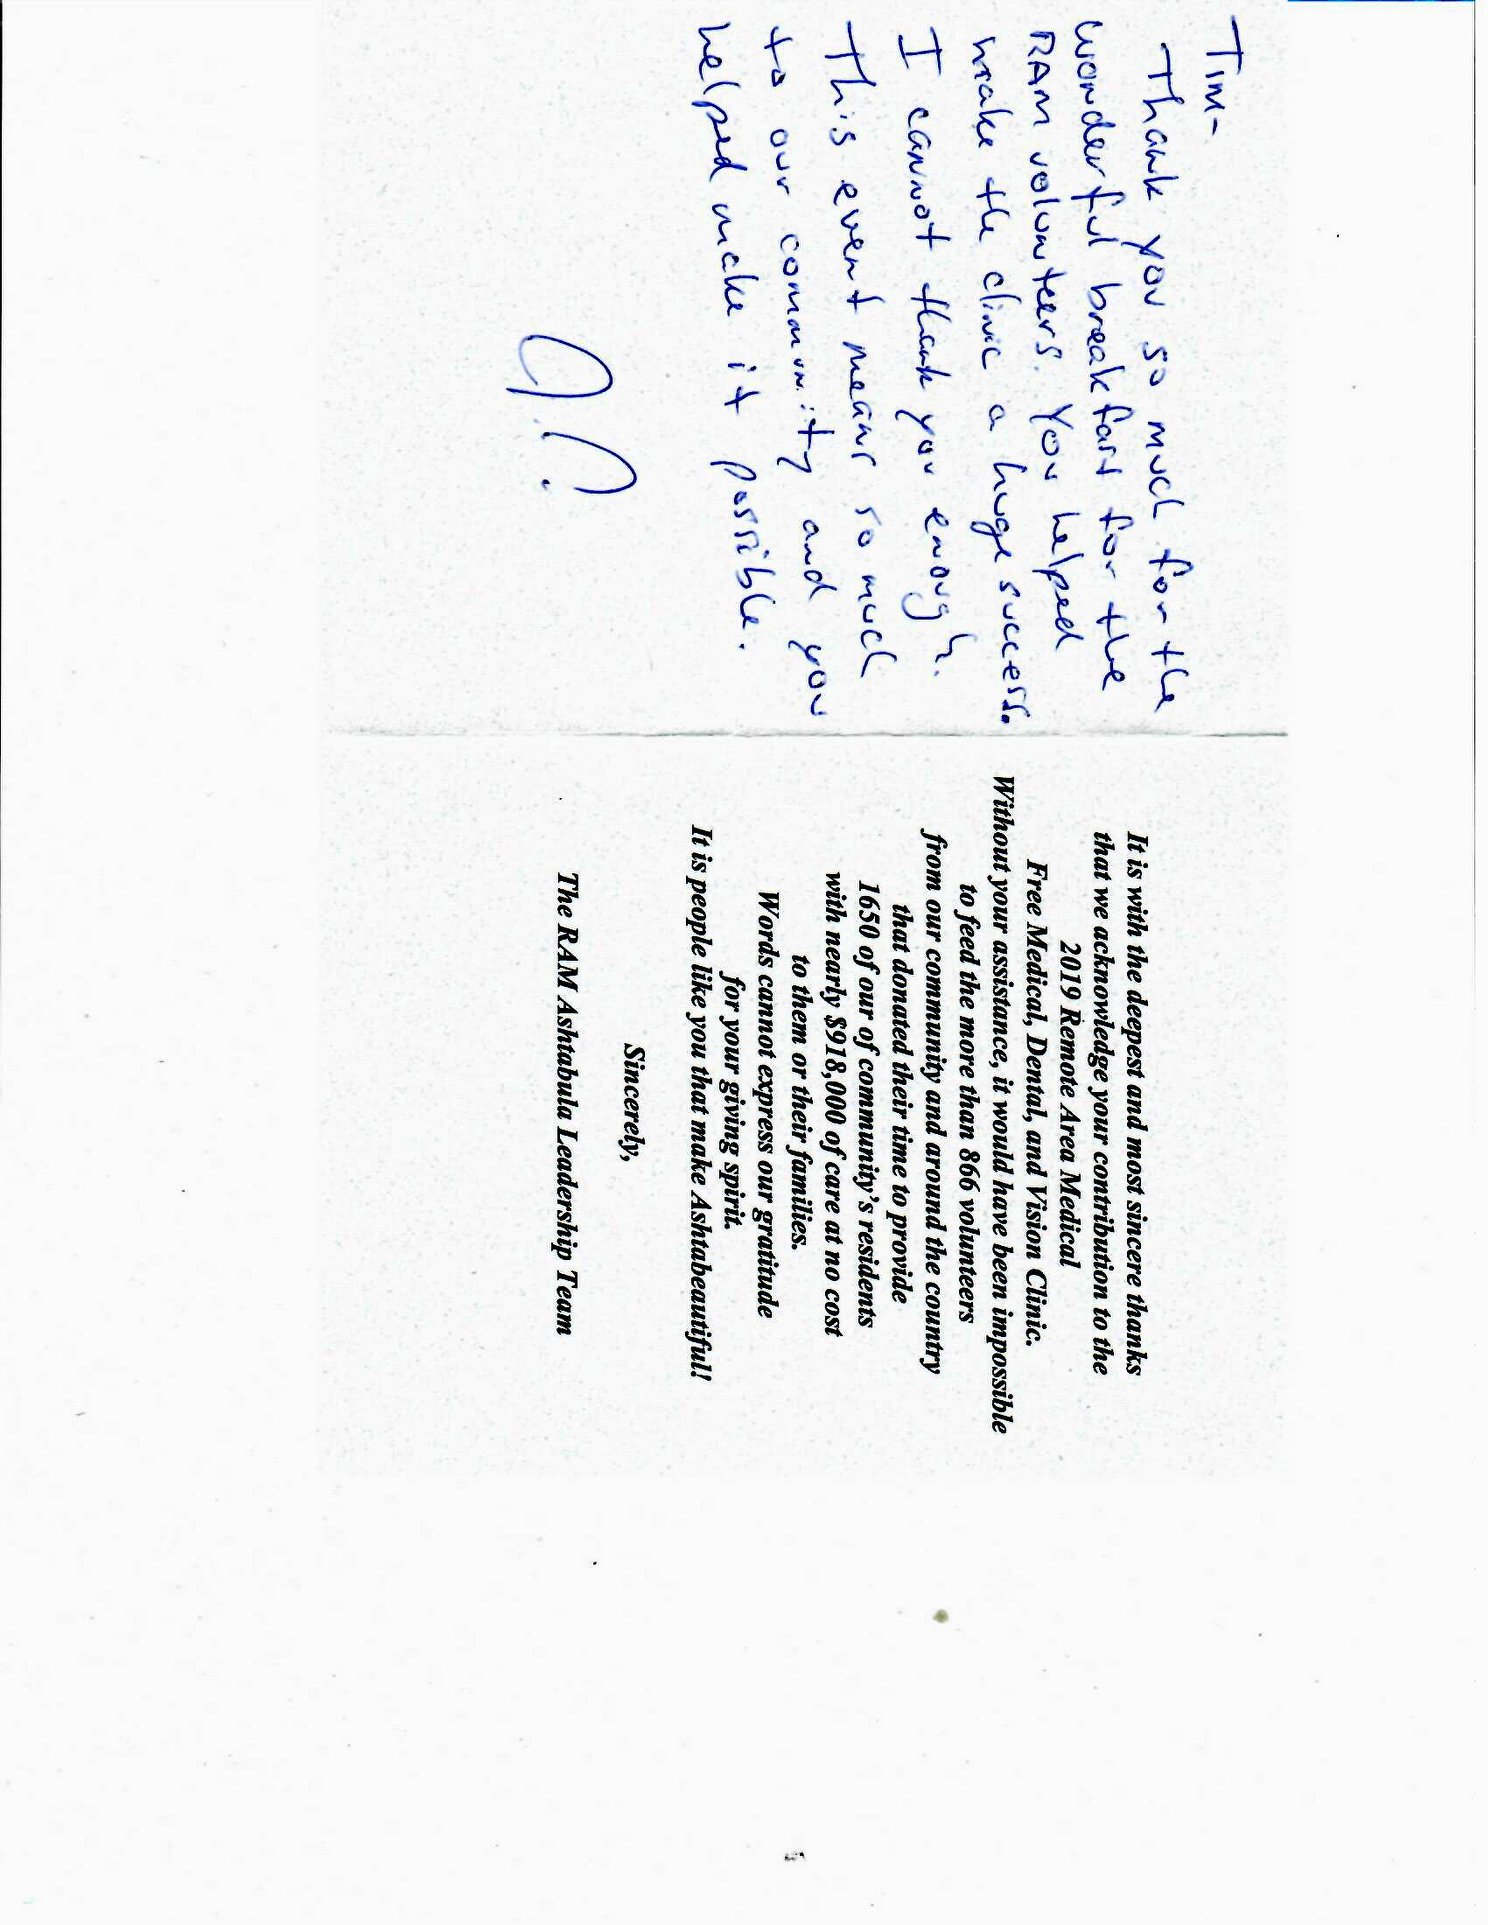 Tim-
Thank you so much for the
wonderful breakfast for the
RAM volunteers. You helped
make the clinic a huge success.
I cannot thank you enough.
This event means so much
to our community and you
helped make it possible.
It is with the deepest and most sincere thanks
that we acknowledge your contribution to the
2019 Remote Area Medical
Free Medical, Dental, and Vision Clinic.
Without your assistance, it would have been impossible
to feed the more than 866 volunteers
from our community and around the country
that donated their time to provide
1650 of our of community's residents
with nearly $918,000 of care at no cost
to them or their families.
Words cannot express our gratitude
for your giving spirit.
It is people like you that make Ashtabeautiful!
Sincerely,
The RAM Ashtabula Leadership Team